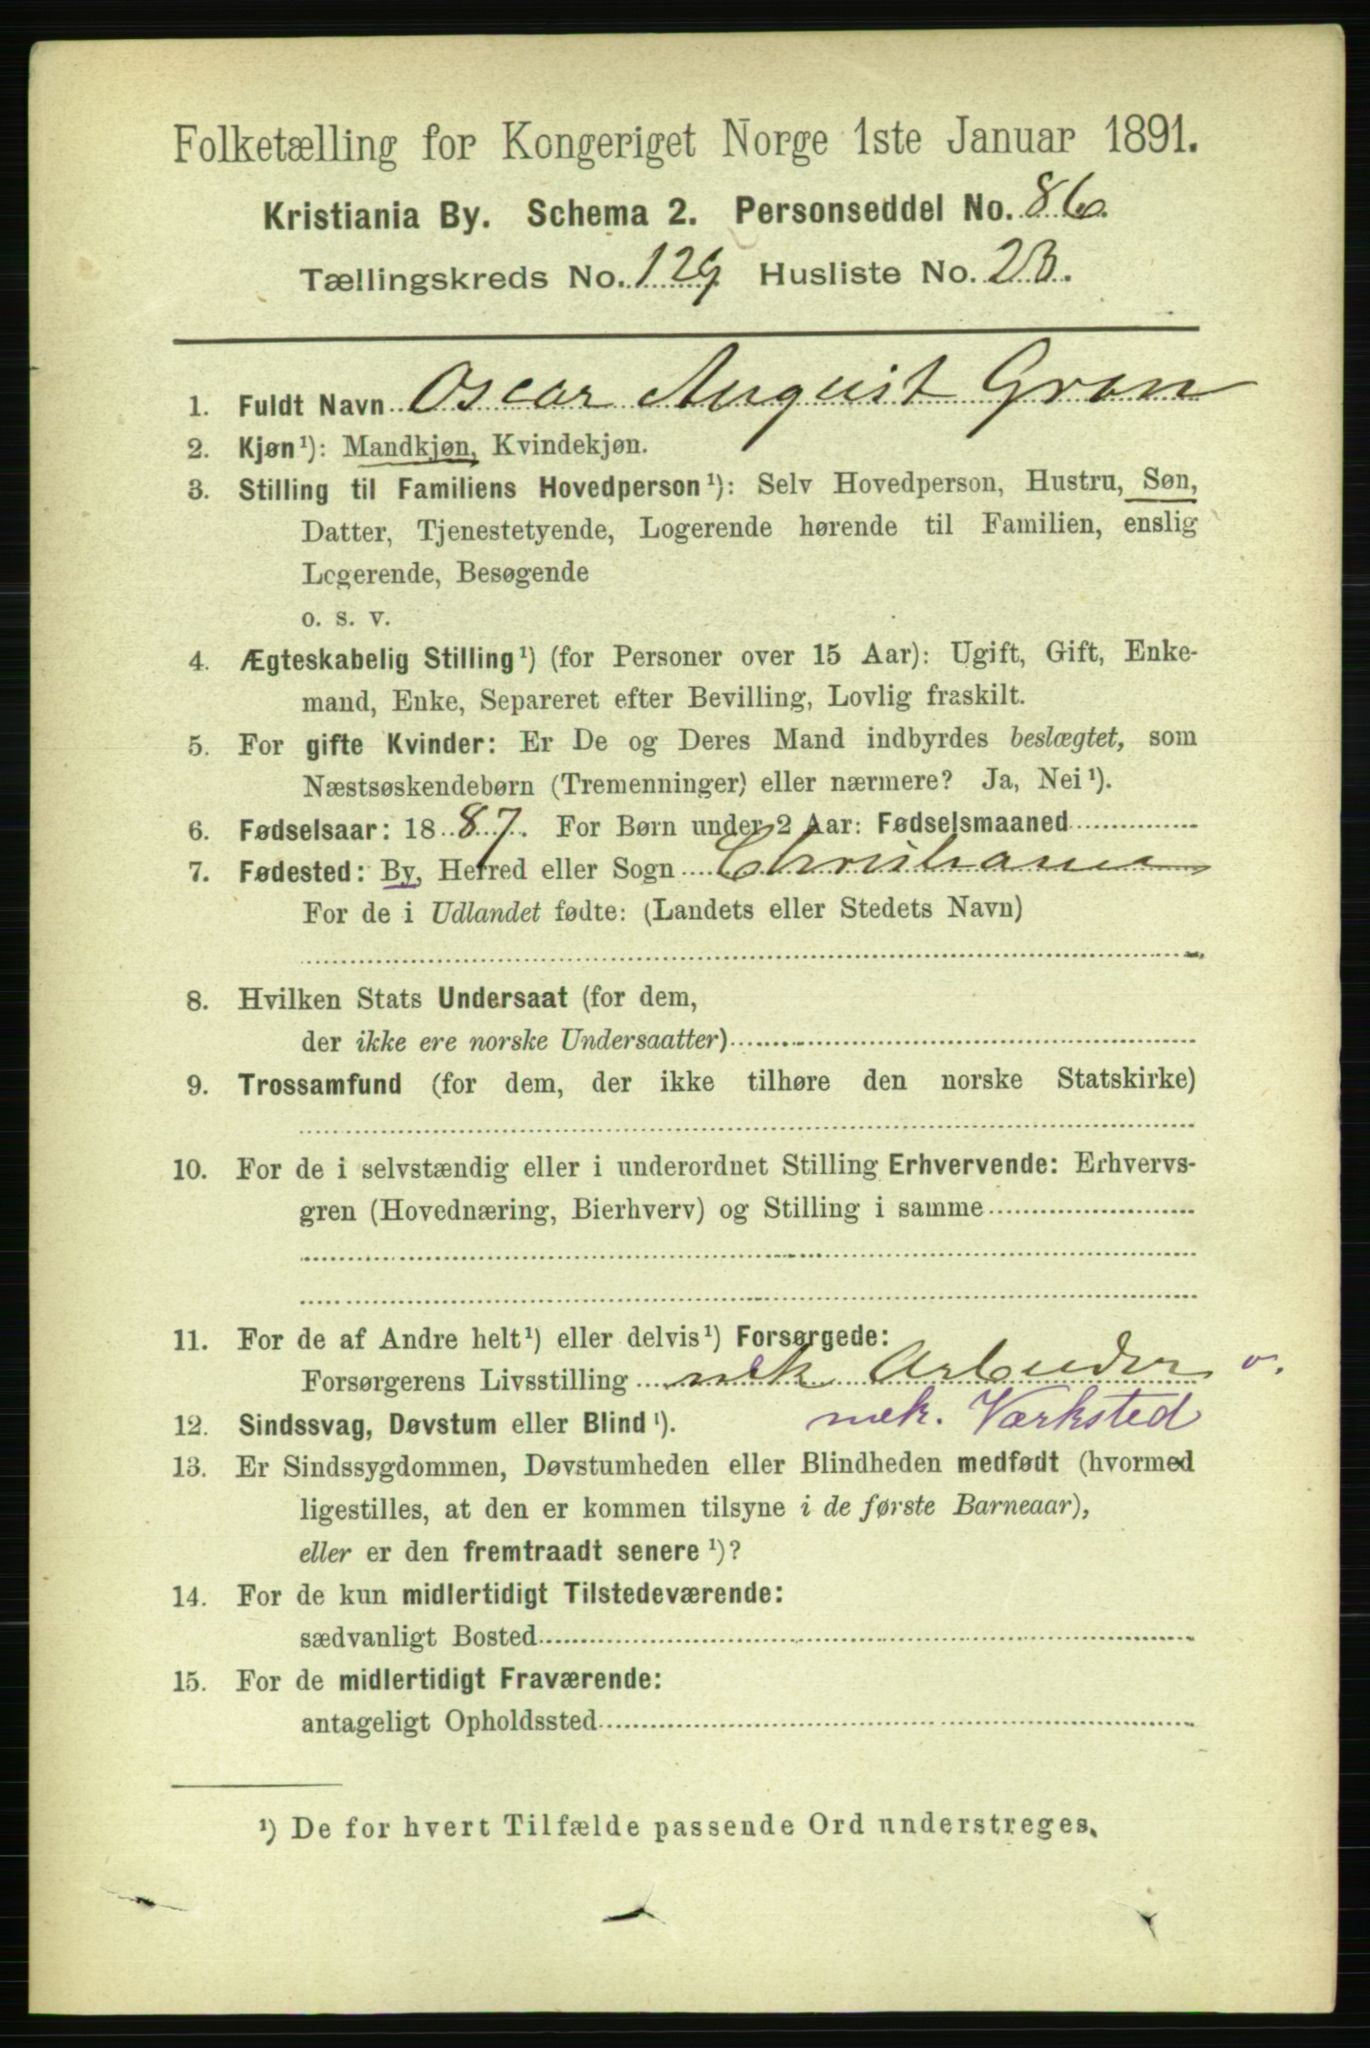 Folketælling for Kongeriget Norge 1ste Januar 1891.
Kristiania By. Schema 2. Personseddel No. 86.
Tællingskreds No. 129 Husliste No. 23.
1. Fuldt Navn Oscar August Gron
2. Kjøn¹): Mandkjøn, Kvindekjøn.
3. Stilling til Familiens Hovedperson¹): Selv Hovedperson, Hustru, Søn,
Datter, Tjenestetyende, Logerende hørende til Familien, enslig
Logerende, Besøgende
o. s. v.
4. Ægteskabelig Stilling¹) (for Personer over 15 Aar): Ugift, Gift, Enke-
mand, Enke, Separeret efter Bevilling, Lovlig fraskilt.
5. For gifte Kvinder: Er De og Deres Mand indbyrdes beslægtet, som
Næstsøskendebørn (Tremenninger) eller nærmere? Ja, Nei¹).
6. Fødselsaar: 1887. For Børn under 2 Aar: Fødselsmaaned
7. Fødested: By, Herred eller Sogn Christiania
For de i Udlandet fødte: (Landets eller Stedets Navn)
8. Hvilken Stats Undersaat (for dem,
der ikke ere norske Undersaatter)
9. Trossamfund (for dem, der ikke tilhøre den norske Statskirke)
10. For de i selvstændig eller i underordnet Stilling Erhvervende: Erhvervs-
gren (Hovednæring, Bierhverv) og Stilling i samme
11. For de af Andre helt¹) eller delvis¹) Forsørgede:
Forsørgerens Livsstilling mek Arbeider v.
12. Sindssvag, Døvstum eller Blind¹). mek. Værksted
13. Er Sindssygdommen, Døvstumheden eller Blindheden medfødt (hvormed
ligestilles, at den er kommen tilsyne i de første Barneaar),
eller er den fremtraadt senere¹)?
14. For de kun midlertidigt Tilstedeværende:
sædvanligt Bosted
15. For de midlertidigt Fraværende:
antageligt Opholdssted
¹) De for hvert Tilfælde passende Ord understreges.